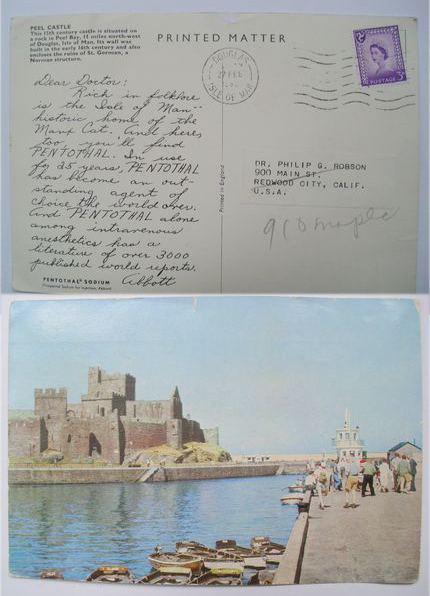 PEEL CASTLE
This 11th century castle is situated on
a rock in Peel Bay, 11 miles north-west
of Douglas, Isle of Man. Its wall was
built in the early 16th century and also
encloses the ruins of St. German, a
Norman structure.
PRINTED MATTER
Dear Doctor:
Rich in folklore
is the Isle of Man--
historic home of the
Manx Cat. And here,
too you'll find
PENTOTHAL. In use
for 25 years, PENTOTHAL
has become an out-
standing agent of
choice the world over.
And PENTOTHAL alone
among intravenous
anesthetics has a
literature of over 3000
published world reports.
Abbott
PENTOTHAL® SODIUM
Printed in England
DOUGLAS
27 FEB
ISLE OF MAN
POSTAGE
3D
DR. PHILIP G. ROBSON
900 MAIN ST.
REDWOOD CITY, CALIF.
U.S.A.
910 maple